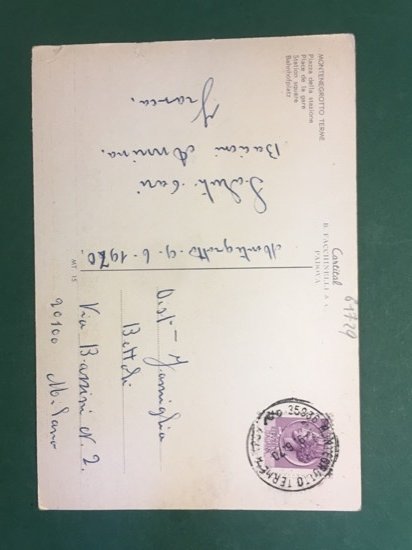 MONTENEGROTTO TERME
Piazza della stazione
Place de la gare
Station square
Bahnhofplatz
Montegrotto 9.6.1970.
Saluti cari
Bacioni Annina.
Franca.
Cartital
B. FACCHINELLI & C.
PADOVA
MT 15
61729
Dist. Famiglia
Bettoli
Via Bassini N. 2.
20100 Milano
MONTEGROTTO TERME
35036
9.6.70